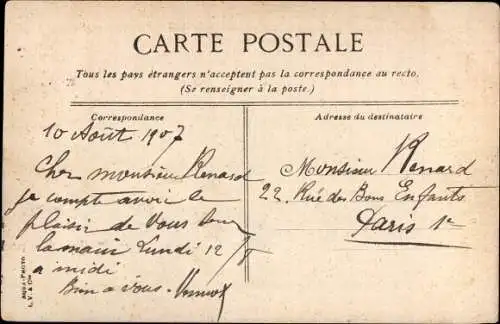 CARTE POSTALE
Tous les pays étrangers n'acceptent pas la correspondance au recto.
(Se renseigner à la poste.)
Correspondance
Adresse du destinataire
10 Août 1907
Cher monsieur Renard
je compte avoir le
plaisir de vous
la main Lundi 12/8
à midi
Bien à vous.
Monsieur Renard
22. Rue des Bons Enfants
Paris 1er
AQUA-PHOTO
L.V. & Cie